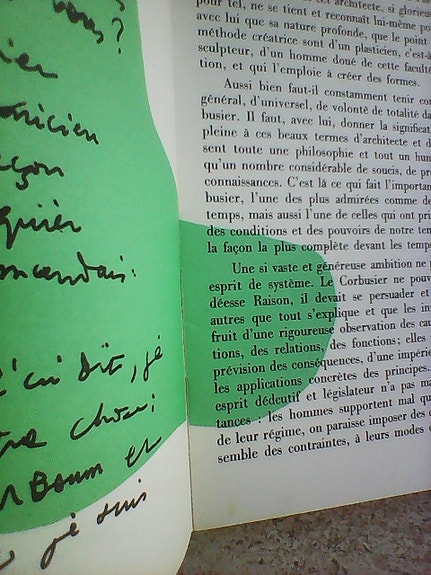 vous ?
çon
l'ai dit, je
tre chose :
Boum et
je suis
architecte, si glorieuse
pour tel, ne se tient et reconnaît lui-même po
avec lui que sa nature profonde, que le point
méthode créatrice sont d'un plasticien, c'est-à
sculpteur, d'un homme doué de cette faculté
tion, et qui l'emploie à créer des formes.
Aussi bien faut-il constamment tenir co
général, d'universel, de volonté de totalité da
busier. Il faut, avec lui, donner la significat
pleine à ces beaux termes d'architecte et d
sent toute une philosophie et tout un hum
qu'un nombre considérable de soucis, de pr
connaissances. C'est là ce qui fait l'importan
busier, l'une des plus admirées comme de
temps, mais aussi l'une de celles qui ont pri
des conditions et des pouvoirs de notre ten
la façon la plus complète devant les temps
Une si vaste et généreuse ambition ne p
esprit de système. Le Corbusier ne pouv
déesse Raison, il devait se persuader et
autres que tout s'explique et que les in
fruit d'une rigoureuse observation des cau
tions, des relations, des fonctions; elles
prévision des conséquences, d'une impérie
les applications concrètes des principes.
esprit déductif et législateur n'a pas ma
tances : les hommes supportent mal qu
de leur régime, on paraisse imposer des c
semble des contraintes, à leurs modes d